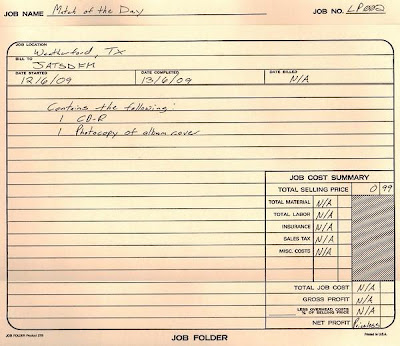 JOB NAME Match of the Day JOB NO. LP002
JOB LOCATION
Weatherford, TX
BILL TO
JATSDFM
DATE STARTED DATE COMPLETED DATE BILLED
12/6/09 13/6/09 N/A
Contains the following:
1 CD-R
1 Photocopy of album cover
JOB COST SUMMARY
TOTAL SELLING PRICE 0 99
TOTAL MATERIAL N/A
TOTAL LABOR N/A
INSURANCE N/A
SALES TAX N/A
MISC. COSTS N/A
TOTAL JOB COST N/A
GROSS PROFIT N/A
LESS OVERHEAD COSTS
% OF SELLING PRICE N/A
NET PROFIT Priceless
JOB FOLDER Product 278
JOB FOLDER
Printed in U.S.A.